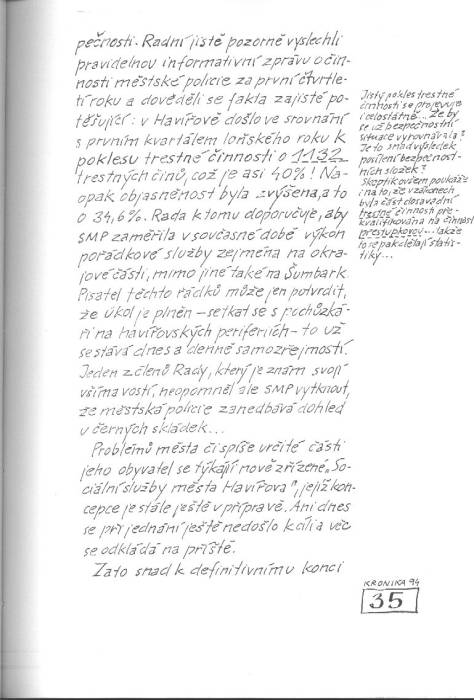 pečnosti. Radní jistě pozorně vyslechli
pravidelnou informativní zprávu o čin-
nosti městské policie za první čtvrtle-
tí roku a dověděli se fakta zajisté po-
těšující: v Havířově došlo ve srovnání
s prvním kvartálem loňského roku k
poklesu trestné činnosti o 1132
trestných činů, což je asi 40%! Na-
opak objasněnost byla zvýšena, a to
o 34,6%. Rada k tomu doporučuje, aby
SMP zaměřila v současné době výkon
pořádkové služby zejména na okra-
jové části, mimo jiné také na Šumbark
Pisatel těchto řádků může jen potvrdit,
že úkol je plněn – setkat se s pochůzká-
ři na havířovských periferiích – to už
se stává dnes a denně samozřejmostí.
Jeden z členů Rady, který je znám svojí
všímavostí, neopomněl ale SMP vytknout,
že městská policie zanedbává dohled
u černých skládek...
Problémů města či spíše určité části
jeho obyvatel se týkají nově zřízené „So-
ciální služby města Havířova", jejíž kon-
cepce je stále ještě v přípravě. Ani dnes
se při jednání ještě nedošlo k cíli a věc
se odkládá na příště.
Zato snad k definitivnímu konci
Jistý pokles trestné
činnosti se projevuje
i celostátně... Že by
se už bezpečnostní
situace vyrovnávala?
Je to snad výsledek
posílení bezpečnost-
ních složek?
Skeptik ovšem poukáže
i na to, že v zákonech
byla část dosavadní
trestné činnosti pře-
kvalifikována na činnost
přestupkovou... takže
to se pak dělají statis-
tiky...
KRONIKA 94
35